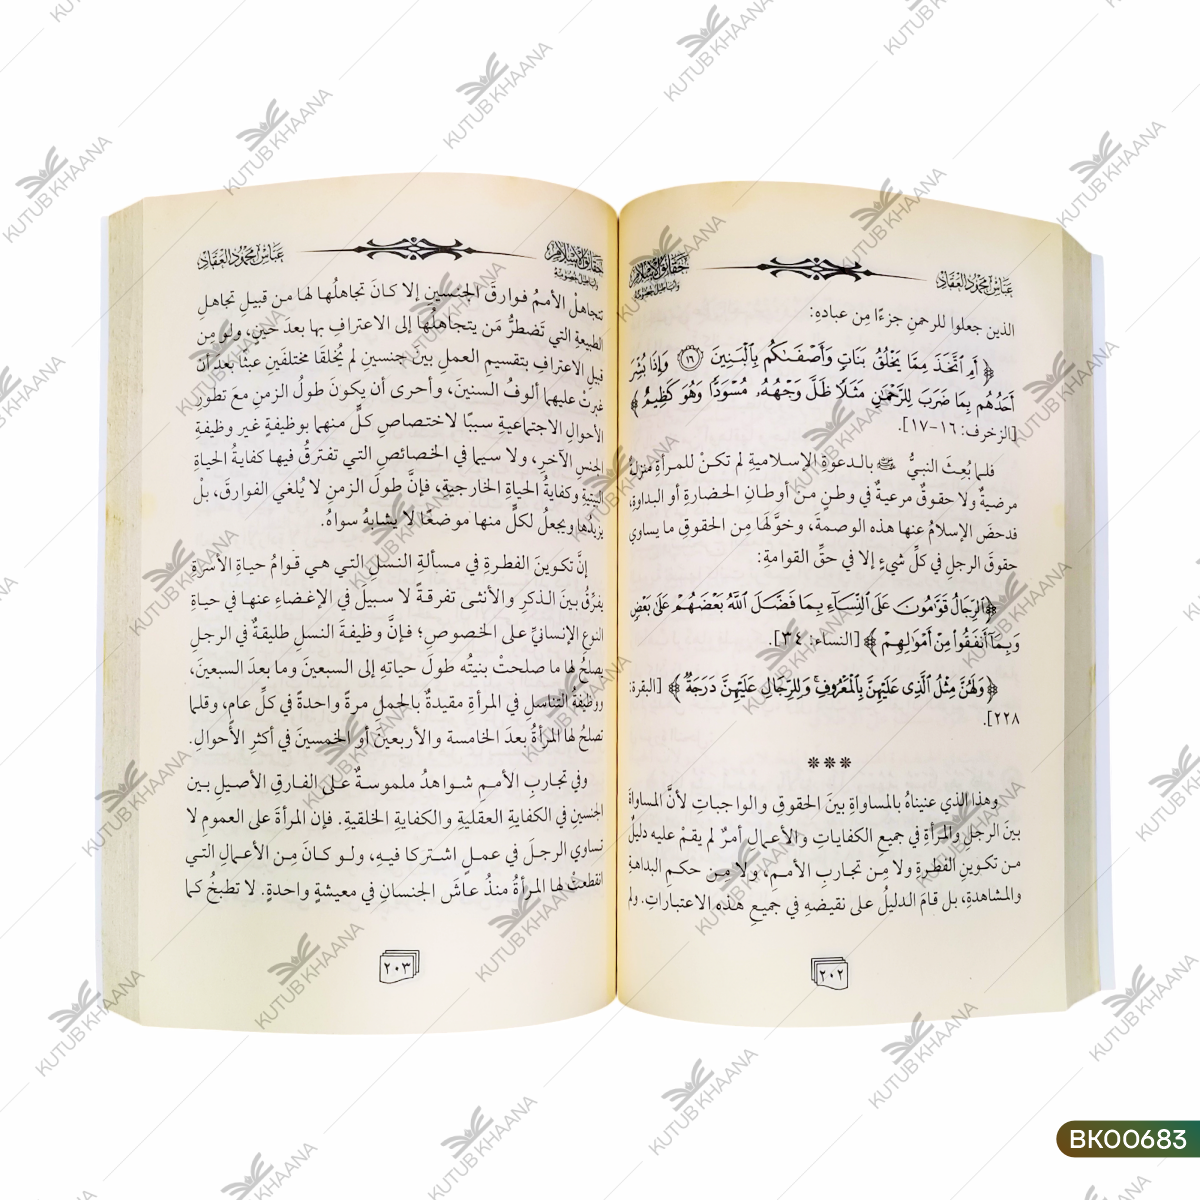 حقائق الإسلام
وأباطيل خصومه
عباس محمود العقاد
الذين جعلوا للرحمنِ جزءًا مِن عبادهِ:
﴿ أَمِ ٱتَّخَذَ مِمَّا يَخْلُقُ بَنَاتٍ وَأَصْفَىٰكُم بِٱلْبَنِينَ ١٦ وَإِذَا بُشِّرَ
أَحَدُهُم بِمَا ضَرَبَ لِلرَّحْمَٰنِ مَثَلًا ظَلَّ وَجْهُهُۥ مُسْوَدًّا وَهُوَ كَظِيمٌ ﴾
[الزخرف: ١٦-١٧].
فلما بُعِثَ النبيُّ ﷺ بالدعوةِ الإسلاميةِ لم تكنْ للمرأةِ منزلةٌ
مرضيةٌ ولا حقوقٌ مرعيةٌ في وطنٍ منْ أوطانِ الحضارةِ أو البداوةِ،
فدحضَ الإسلامُ عنها هذه الوصمةَ، وخوَّلَها مِن الحقوقِ ما يساوي
حقوقَ الرجلِ في كلِّ شيءٍ إلا في حقِّ القوامةِ:
﴿ٱلرِّجَالُ قَوَّٰمُونَ عَلَى ٱلنِّسَآءِ بِمَا فَضَّلَ ٱللَّهُ بَعْضَهُمْ عَلَىٰ بَعْضٍ
وَبِمَآ أَنفَقُوا۟ مِنْ أَمْوَٰلِهِمْ ﴾ [النساء: ٣٤].
﴿وَلَهُنَّ مِثْلُ ٱلَّذِى عَلَيْهِنَّ بِٱلْمَعْرُوفِ ۚ وَلِلرِّجَالِ عَلَيْهِنَّ دَرَجَةٌ ﴾ [البقرة:
٢٢٨].
***
وهذا الذي عنيناهُ بالمساواةِ بينَ الحقوقِ والواجباتِ لأنَّ المساواةَ
بينَ الرجلِ والمرأةِ في جميعِ الكفاياتِ والأعمالِ أمرٌ لم يقمْ عليه دليلٌ
من تكوينِ الفطرةِ ولا مِن تجاربِ الأممِ، ولا من حكمِ البداهةِ
والمشاهدةِ، بل قامَ الدليلُ على نقيضهِ في جميعِ هذه الاعتباراتِ. ولم
٢٠٢
حقائق الإسلام
وأباطيل خصومه
عباس محمود العقاد
تتجاهلْ الأممُ فوارقَ الجنسينِ إلا كانَ تجاهلُها لها من قبيلِ تجاهلِ
الطبيعةِ التي تَضطرُّ مَن يتجاهلُها إلى الاعترافِ بها بعدَ حينٍ، ولو مِن
قبيلِ الاعترافِ بتقسيمِ العملِ بينَ جنسينِ لم يُخلقَا مختلفَينِ عبثًا بعدَ أنْ
غبرتْ عليهما ألوفُ السنينَ، وأحرى أن يكونَ طولُ الزمنِ معَ تطورِ
الأحوالِ الاجتماعيةِ سببًا لاختصاصِ كلٍّ منهما بوظيفةٍ غيرِ وظيفةِ
الجنسِ الآخرِ، ولا سيما في الخصائصِ التي تفترقُ فيها كفايةُ الحياةِ
البيتيةِ وكفايةُ الحياةِ الخارجيةِ، فإنَّ طولَ الزمنِ لا يُلغي الفوارقَ، بلْ
يزيدُها ويجعلُ لكلٍّ منها موضعًا لا يشابهُ سواهُ.
إنَّ تكوينَ الفطرةِ في مسألةِ النسلِ التي هي قوامُ حياةِ الأسرةِ
يفرِّقُ بينَ الذكرِ والأنثى تفرقةً لا سبيلَ في الإغضاءِ عنها في حياةِ
النوعِ الإنسانيِّ على الخصوصِ؛ فإنَّ وظيفةَ النسلِ طليقةٌ في الرجلِ
يصلحُ لها ما صلحتْ بنيتُه طولَ حياتهِ إلى السبعينَ وما بعدَ السبعينَ،
ووظيفةُ التناسلِ في المرأةِ مقيدةٌ بالحملِ مرةً واحدةً في كلِّ عامٍ، وقلما
تصلحُ لها المرأةُ بعدَ الخامسة والأربعينَ أو الخمسينَ في أكثرِ الأحوالِ.
وفي تجاربِ الأممِ شواهدُ ملموسةٌ على الفارقِ الأصيلِ بينِ
الجنسينِ في الكفايةِ العقليةِ والكفايةِ الخلقيةِ. فإن المرأةَ على العمومِ لا
تساوي الرجلَ في عملٍ اشتركا فيهِ، ولو كانَ مِن الأعمالِ التي
انقطعتْ لها المرأةُ منذُ عاشَ الجنسانِ في معيشةٍ واحدةٍ. لا تطبخُ كما
٢٠٣
KUTUB KHAANA
BK00683